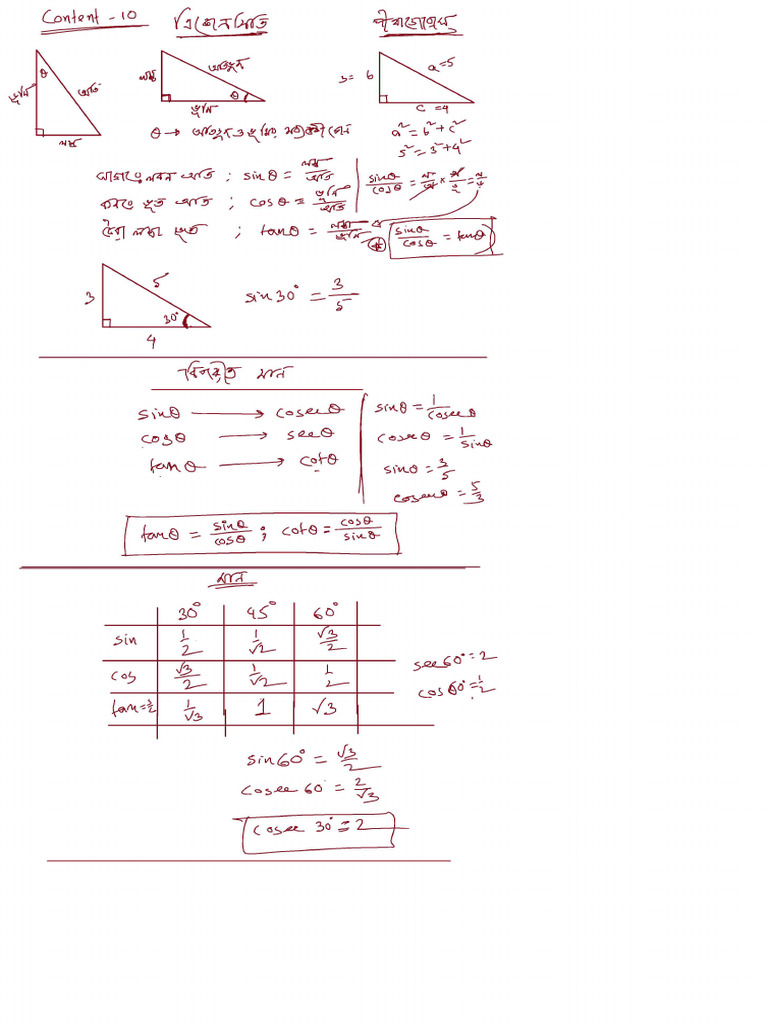 Content - 10 ত্রিকোনমিতি পীথাগোরাস
θ ভূমি অতি লম্ব
লম্ব অতিভুজ θ ভূমি
3 = b a = 5 c = 4
θ → অতিভুজ ও ভূমির মধ্যবর্তী কোন
a² = b² + c²
5² = 3² + 4²
সাগরে লবন অতি ; sinθ = লম্ব/অতি
কবরে ভূত অতি ; cosθ = ভূমি/অতি
ট্যারা লম্বা ভূত ; tanθ = লম্ব/ভূমি
sinθ/cosθ = ল/অ × অ/ভূ = ল/ভূ
sinθ/cosθ = tanθ
3 5 30° 4
sin30° = 3/5
বিপরীত মান
sinθ → cosecθ
cosθ → secθ
tanθ → cotθ
sinθ = 1/cosecθ
cosecθ = 1/sinθ
sinθ = 3/5
cosecθ = 5/3
tanθ = sinθ/cosθ ; cotθ = cosθ/sinθ
মান
30° 45° 60°
sin 1/2 1/√2 √3/2
cos √3/2 1/√2 1/2
tan = s/c 1/√3 1 √3
sec60° = 2
cos60° = 1/2
sin60° = √3/2
cosec60° = 2/√3
cosec 30° = 2